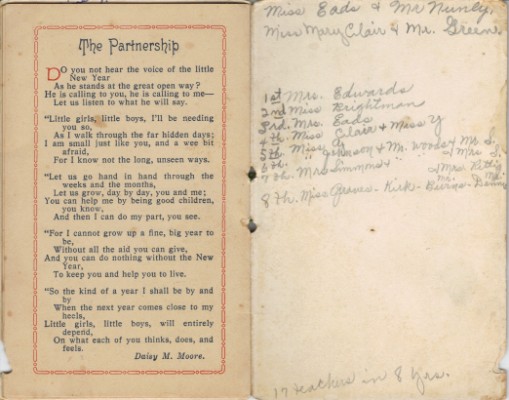 The Partnership
DO you not hear the voice of the little
New Year
As he stands at the great open way?
He is calling to you, he is calling to me—
Let us listen to what he will say.
“Little girls, little boys, I'll be needing
you so,
As I walk through the far hidden days;
I am small just like you, and a wee bit
afraid,
For I know not the long, unseen ways.
“Let us go hand in hand through the
weeks and the months,
Let us grow, day by day, you and me;
You can help me by being good children,
you know,
And then I can do my part, you see.
“For I cannot grow up a fine, big year to
be,
Without all the aid you can give,
And you can do nothing without the New
Year,
To keep you and help you to live.
“So the kind of a year I shall be by and
by
When the next year comes close to my
heels,
Little girls, little boys, will entirely
depend,
On what each of you thinks, does, and
feels.
Daisy M. Moore.
Miss Eads & Mr Nunly,
Miss Mary Clair & Mr. Greene
1st Mrs. Edwards
2nd Miss Brightman
3rd. Mrs. Eads
4th. Miss Clair & Miss Y
5th. Miss
6th. " Johnson & Mr. Woods & Mr. S.
7th. Mrs Simmms & & Mrs. S.
& Mrs.
8th. Miss Graves - Kirk - Burns -
17 teachers in 8 Yrs.